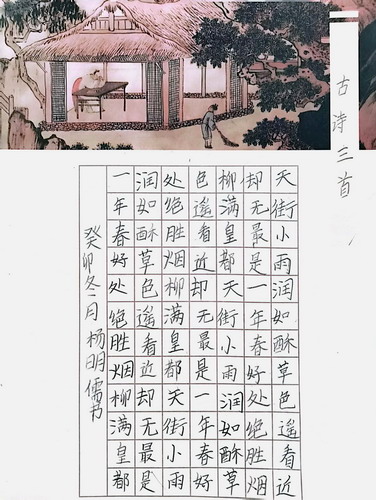 古诗三首
天街小雨润如酥草色遥看近
却无最是一年春好处绝胜烟
柳满皇都天街小雨润如酥草
色遥看近却无最是一年春好
处绝胜烟柳满皇都天街小雨
润如酥草色遥看近却无最是
一年春好处绝胜烟柳满皇都
癸卯冬月杨明儒书